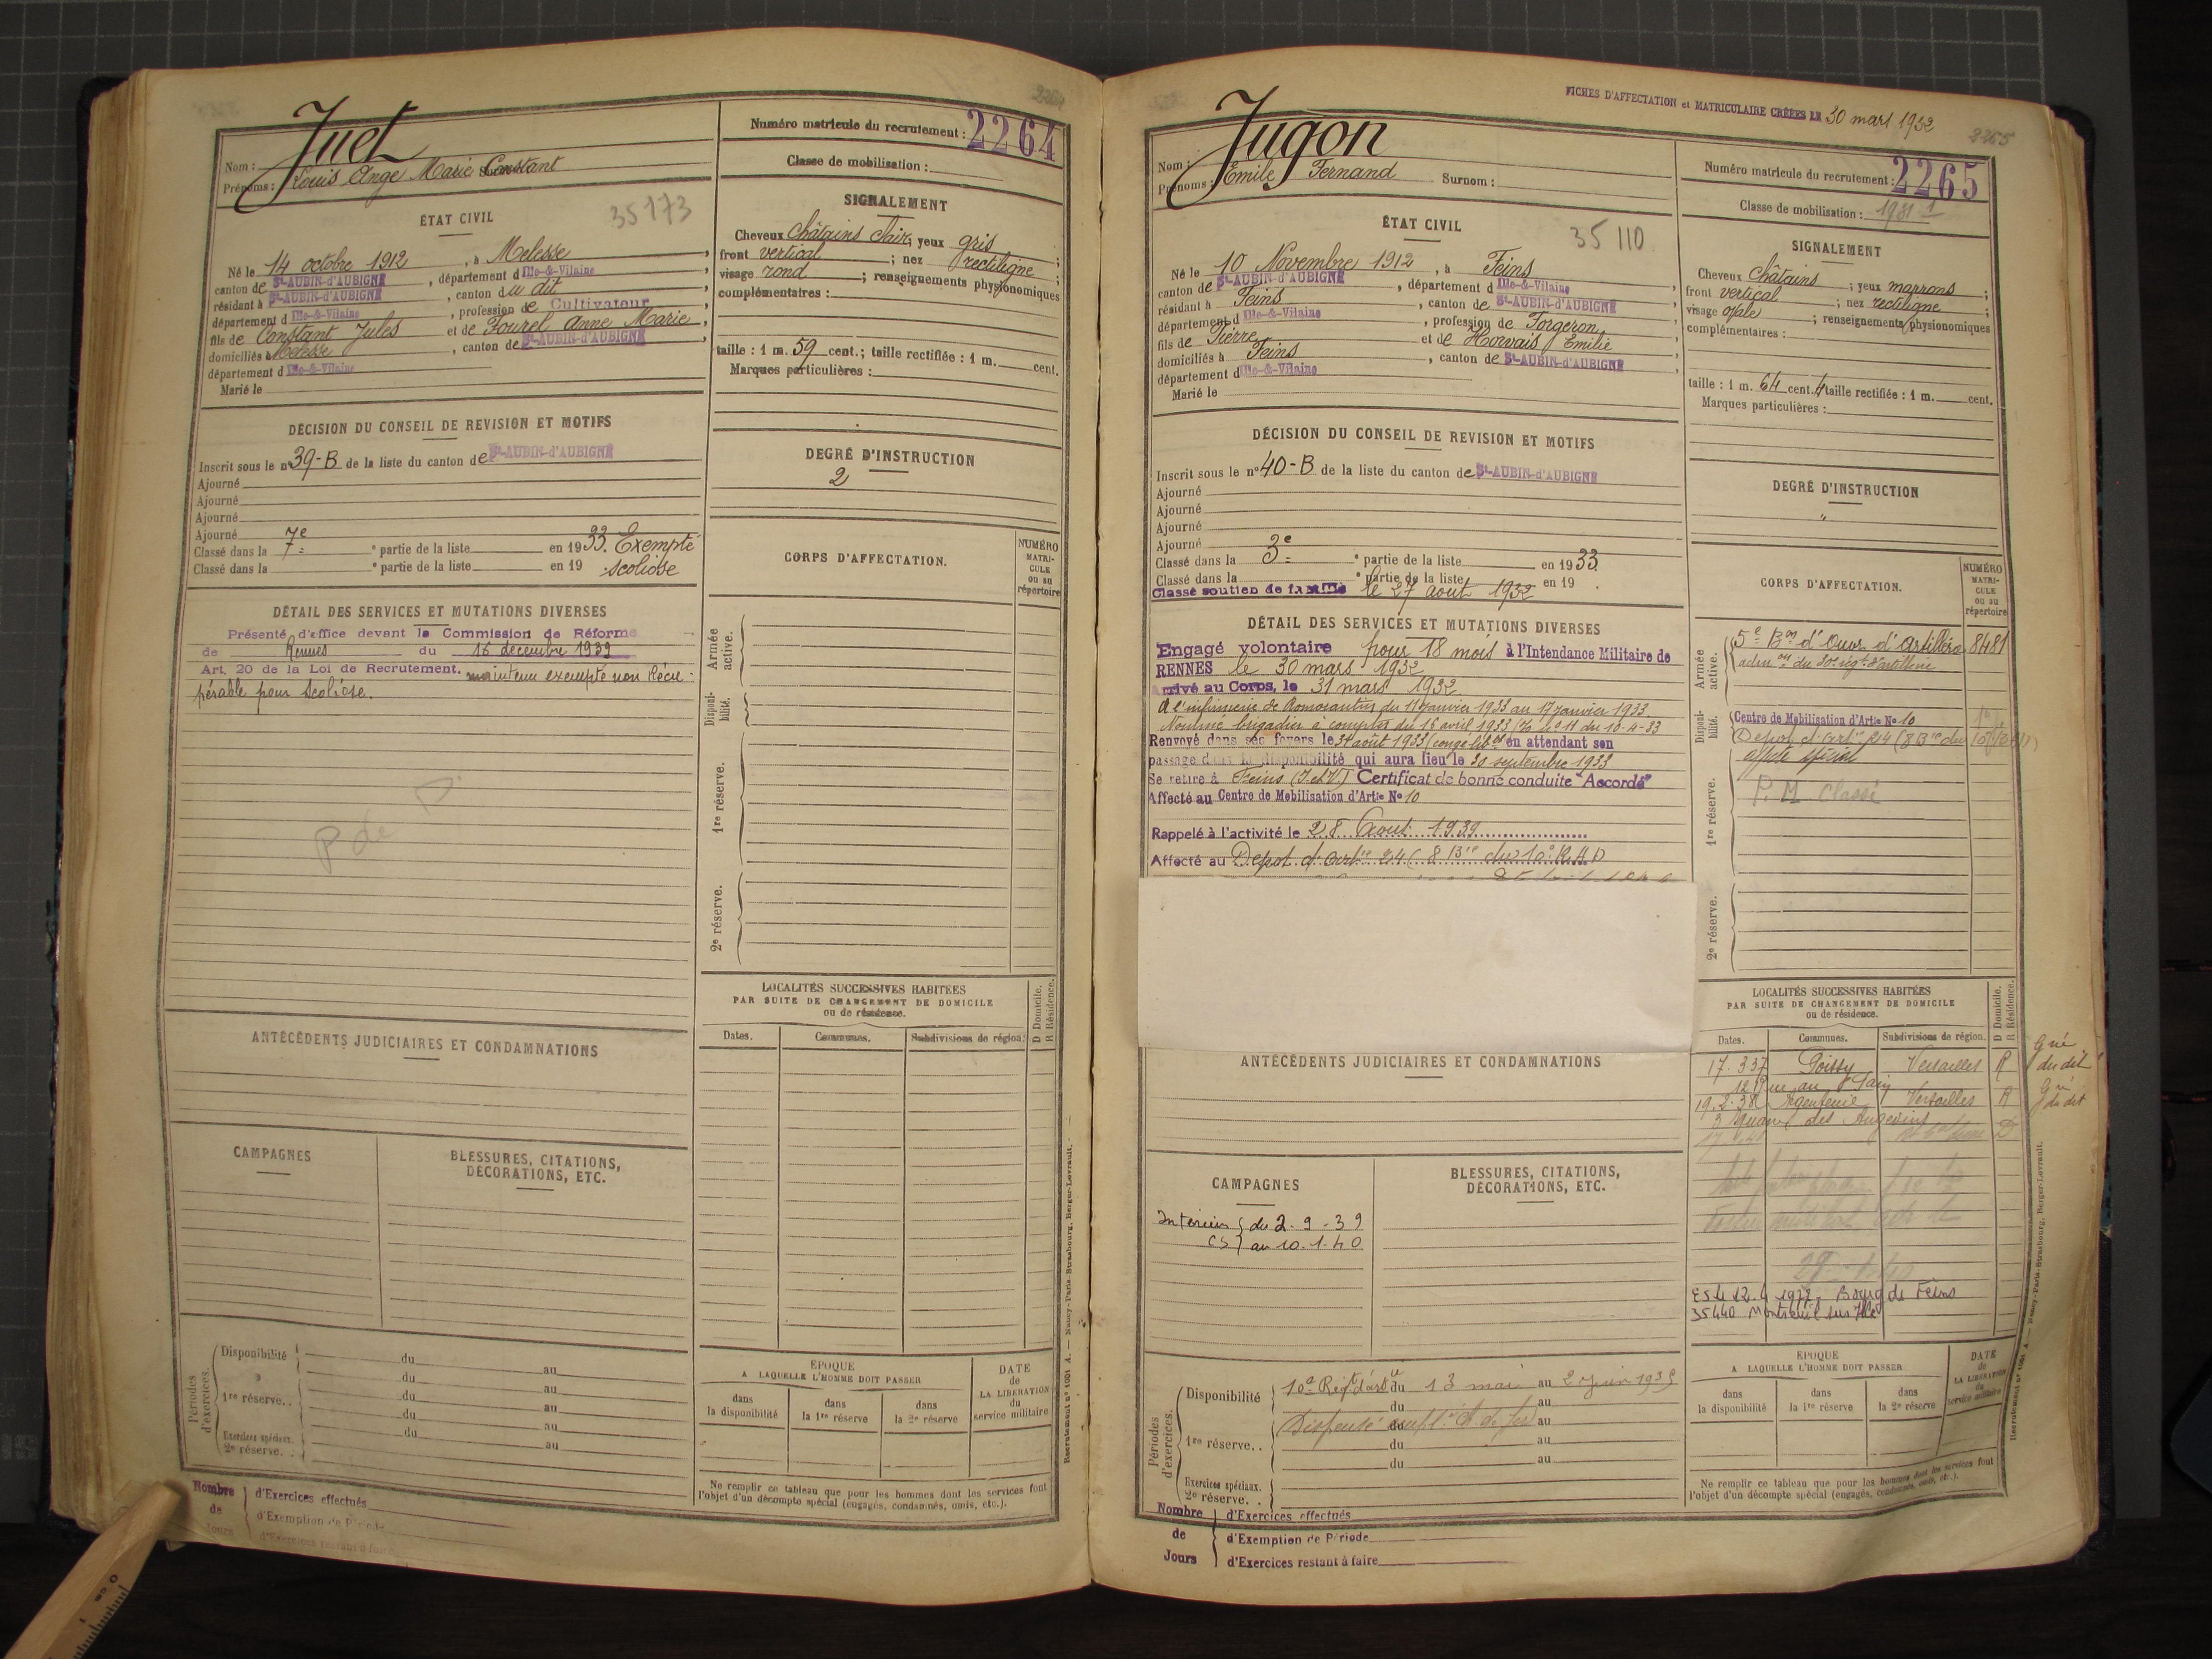 2264
Juet
Nom :
Prénoms : Louis Ange Marie Constant
Numéro matricule du recrutement : 2264
Classe de mobilisation :
ÉTAT CIVIL
35173
Né le 14 octobre 1912, à Melesse,
canton de St-AUBIN-d'AUBIGNÉ, département d Ille-&-Vilaine,
résidant à St-AUBIN-d'AUBIGNÉ, canton du dit,
département d Ille-&-Vilaine, profession de Cultivateur,
fils de Constant Jules et de Fourel Anne Marie,
domiciliés à Melesse, canton de St-AUBIN-d'AUBIGNÉ,
département d Ille-&-Vilaine
Marié le
SIGNALEMENT
Cheveux châtains clair; yeux gris;
front vertical; nez rectiligne;
visage rond; renseignements physionomiques
complémentaires :
taille : 1 m. 59 cent.; taille rectifiée : 1 m. cent.
Marques particulières :
DÉCISION DU CONSEIL DE REVISION ET MOTIFS
Inscrit sous le n° 39-B de la liste du canton de St-AUBIN-d'AUBIGNÉ
Ajourné
Ajourné
Ajourné
Ajourné
Classé dans la 7e partie de la liste en 1933. Exempté
Classé dans la e partie de la liste en 19 . scoliose
DEGRÉ D'INSTRUCTION
2
DÉTAIL DES SERVICES ET MUTATIONS DIVERSES
Présenté d'office devant la Commission de Réforme
de Rennes du 16 décembre 1939
Art. 20 de la Loi de Recrutement. maintenu exempté non Récu-
pérable pour Scoliose.
P de D
CORPS D'AFFECTATION.
NUMÉRO
MATRI-
CULE
ou au
répertoire
Armée active.
Disponi-bilité.
1re réserve.
2e réserve.
LOCALITÉS SUCCESSIVES HABITÉES
PAR SUITE DE CHANGEMENT DE DOMICILE
ou de résidence.
D Domicile.
R Résidence.
Dates. Communes. Subdivisions de région.
ANTÉCÉDENTS JUDICIAIRES ET CONDAMNATIONS
CAMPAGNES
BLESSURES, CITATIONS,
DÉCORATIONS, ETC.
Périodes d'exercices.
Disponibilité du au
du au
1re réserve. . du au
du au
Exercices spéciaux.
2e réserve. . du au
ÉPOQUE
A LAQUELLE L'HOMME DOIT PASSER
dans la disponibilité
dans la 1re réserve
dans la 2e réserve
DATE
de
LA LIBÉRATION
du
service militaire
Ne remplir ce tableau que pour les hommes dont les services font
l'objet d'un décompte spécial (engagés, condamnés, omis, etc.).
Nombre de Jours
d'Exercices effectués
d'Exemption de Période
d'Exercices restant à faire
Recrutement n° 1001 A. — Nancy-Paris-Strasbourg, Berger-Levrault.
FICHES D'AFFECTATION et MATRICULAIRE CRÉÉES LE 30 mars 1932
2265
Jugon
Nom :
Prénoms : Emile Fernand Surnom :
Numéro matricule du recrutement : 2265
Classe de mobilisation : 1931
ÉTAT CIVIL
35110
Né le 10 Novembre 1912, à Feins,
canton de St-AUBIN-d'AUBIGNÉ, département d Ille-&-Vilaine,
résidant à Feins, canton de St-AUBIN-d'AUBIGNÉ,
département d Ille-&-Vilaine, profession de Forgeron,
fils de Pierre et de Horvais Emilie
domiciliés à Feins, canton de St-AUBIN-d'AUBIGNÉ,
département d Ille-&-Vilaine
Marié le
SIGNALEMENT
Cheveux châtains; yeux marrons;
front vertical; nez rectiligne;
visage ovale; renseignements physionomiques
complémentaires :
taille : 1 m. 64 cent. 4 taille rectifiée : 1 m. cent.
Marques particulières :
DÉCISION DU CONSEIL DE REVISION ET MOTIFS
Inscrit sous le n° 40-B de la liste du canton de St-AUBIN-d'AUBIGNÉ
Ajourné
Ajourné
Ajourné
Ajourné
Classé dans la 3e partie de la liste en 1933.
Classé dans la e partie de la liste en 19 .
Classé soutien de famille le 27 aout 1932
DEGRÉ D'INSTRUCTION
"
DÉTAIL DES SERVICES ET MUTATIONS DIVERSES
Engagé volontaire pour 18 mois à l'Intendance Militaire de
RENNES le 30 mars 1932
Arrivé au Corps, le 31 mars 1932.
A l'infirmerie de Romorantin du 11 janvier 1933 au 17 janvier 1933.
Nommé brigadier à compter du 16 avril 1933 du 10-4-33
Renvoyé dans ses foyers le 31 août 1933 en attendant son
passage dans la disponibilité qui aura lieu le 30 septembre 1933
Se retire à Feins (I.et V.) Certificat de bonne conduite "Accordé"
Affecté au Centre de Mobilisation d'Artie No 10
Rappelé à l'activité le 28 Aout 1939
Affecté au Depot d'artie 24 (8 Bie du 10e R.A.D
CORPS D'AFFECTATION.
NUMÉRO
MATRI-
CULE
ou au
répertoire
Armée active.
5e Bon d'Ouv. d'Artillerie 8481
du 30e régt d'artillerie
Disponi-bilité.
Centre de Mobilisation d'Artie No 10
affecté spécial
1re réserve.
P. M. Classé
2e réserve.
LOCALITÉS SUCCESSIVES HABITÉES
PAR SUITE DE CHANGEMENT DE DOMICILE
ou de résidence.
D Domicile.
R Résidence.
Dates. Communes. Subdivisions de région.
17.3.37 Poissy Versailles R du dit
12 Rue au Pain
19.2.38 Argenteuil Versailles R du dit
des Angevins
Bourg de Feins
35440 Montreuil sur Ille
ANTÉCÉDENTS JUDICIAIRES ET CONDAMNATIONS
CAMPAGNES
Intérieur du 2-9-39
CS au 10.1.40
BLESSURES, CITATIONS,
DÉCORATIONS, ETC.
Périodes d'exercices.
Disponibilité 10e Regt d'artie du 13 mai au 2 juin
du au
1re réserve. . du au
du au
Exercices spéciaux.
2e réserve. .
ÉPOQUE
A LAQUELLE L'HOMME DOIT PASSER
dans la disponibilité
dans la 1re réserve
dans la 2e réserve
DATE
de
LA LIBÉRATION
du
service militaire
Ne remplir ce tableau que pour les hommes dont les services font
l'objet d'un décompte spécial (engagés, condamnés, omis, etc.).
Nombre de Jours
d'Exercices effectués
d'Exemption de Période
d'Exercices restant à faire
Recrutement n° 1001 A. — Nancy-Paris-Strasbourg, Berger-Levrault.